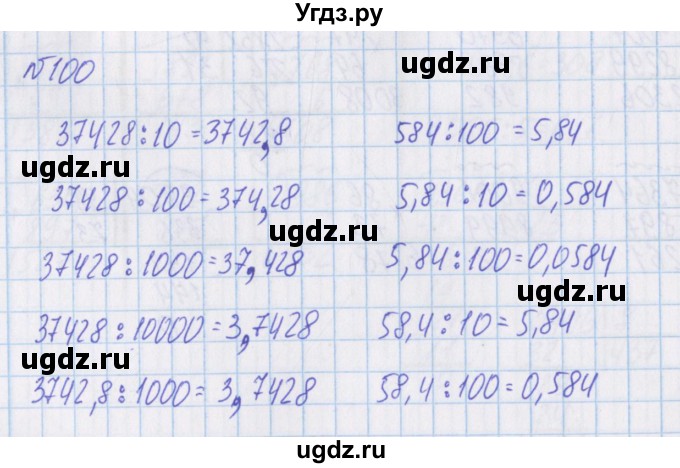 Угдз.ру
№100
ugdz.ru
37428:10=3742,8
584:100=5,84
ugdz.ru
37428:100=374,28
5,84:10=0,584
ugdz.ru
37428:1000=37,428
5,84:100=0,0584
ugdz.ru
ugdz.ru
37428:10000=3,7428
58,4:10=5,84
ugdz.ru
3742,8:1000=3,7428
58,4:100=0,584
ugdz.ru
ugdz.ru